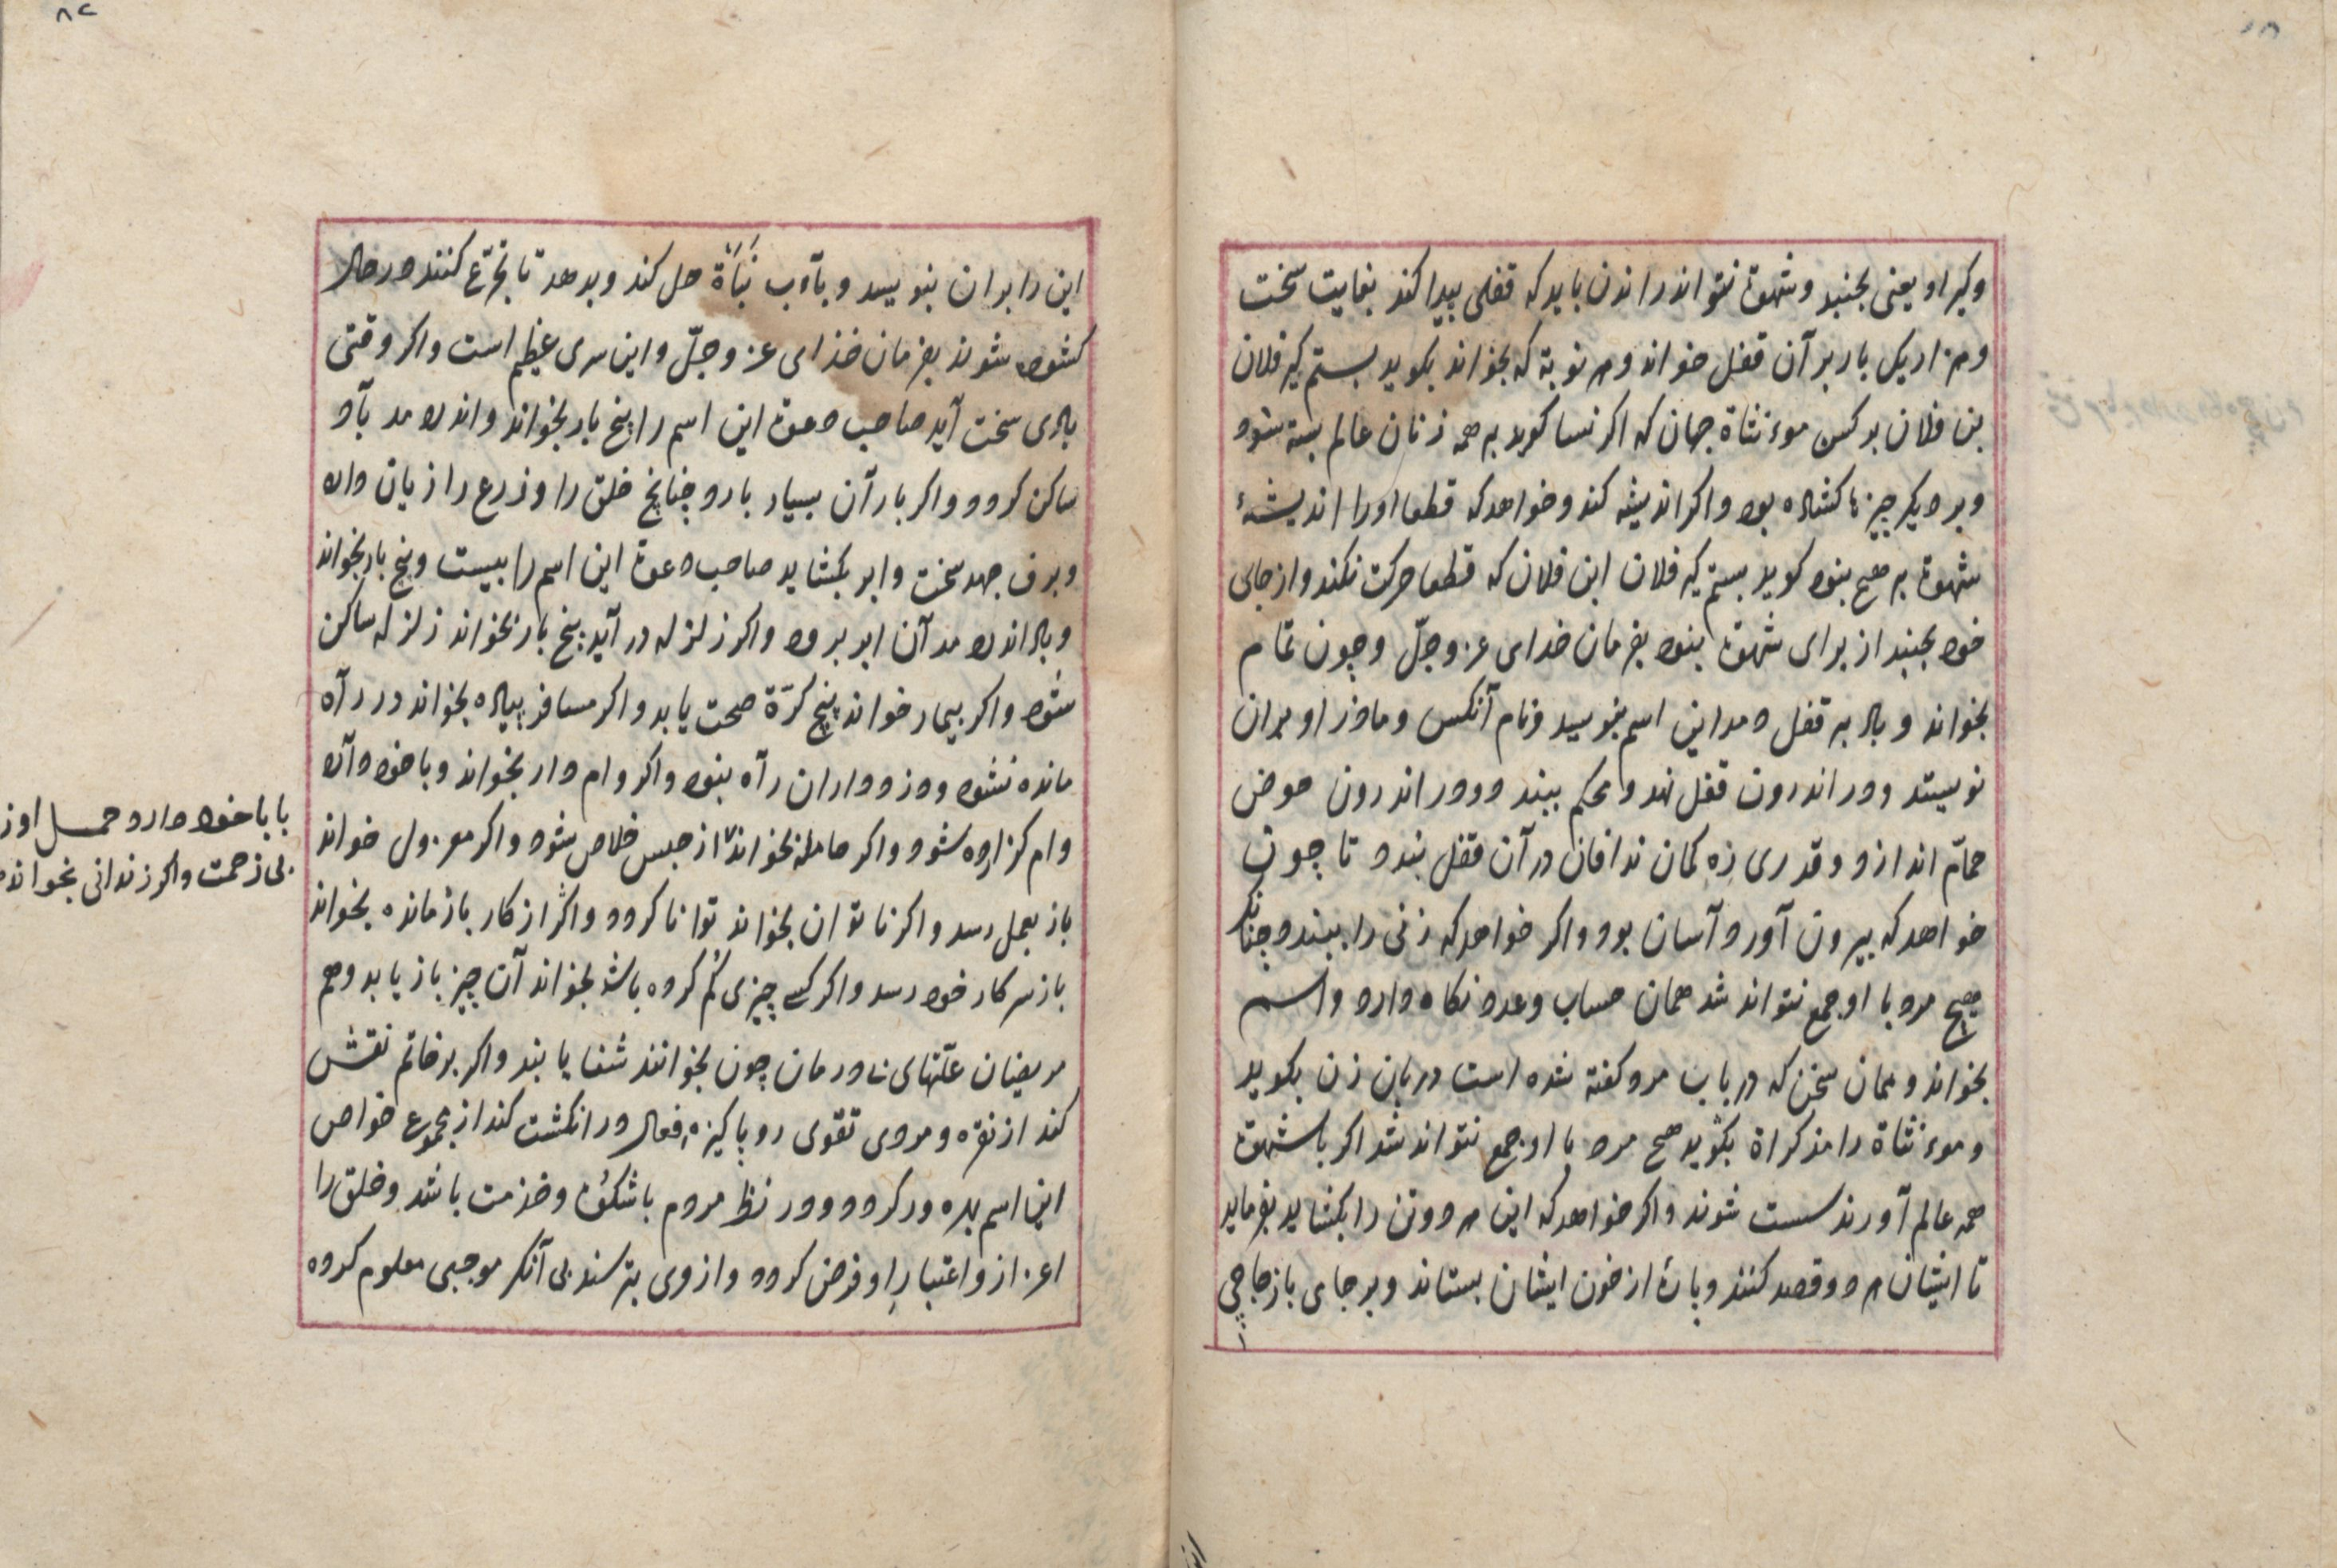 وکیر او یعنی بجنبد و شهوت نتواند راندن باید که قفلی پیدا کند بغایت سخت
وهزار یکبار بر آن قفل خواند وهر نوبة که بخواند بکوید بستم کیر فلان
بن فلان بر کس موءنثاة جهان که اکر نسا کوید بر همه زنان عالم بسته شود
وبر دیکر چیزها کشاده بود واکر اندیشه کند وخواهد که قطعا اورا اندیشهٔ
شهوت بر هیچ بنود کوید بستم کیر فلان ابن فلان که قطعا حرکت نکند واز جای
خود بجنبد از برای شهوت بنود بفرمان خدای عز وجلّ وچون تمام
بخواند وباد بر قفل دمد این اسم بنویسد ونام آنکس ومادر او بران
نویسند ودر اندرون قفل نهد ومحکم ببندد ودر اندرون حوض
حمّام اندازد وقدری زه کمان ندافان در آن قفل بندد تا چون
خواهد که بیرون آورد آسان بود واکر خواهد که زنی را ببندد چنانکه
هیچ مرد با او جمع نتواند شد همان حساب وعدد نکاه دارد واسم
بخواند وهمان سخن که در باب مرد کفته شده است در باب زن بکوید
وموءنثاة را مذکراة بکوید هیچ مرد با او جمع نتواند شد اکر با شهوت
همه عالم آورند سست شوند واکر خواهد که این هر دو تن را بکشاید بفرماید
تا ایشان هر دو قصد کنند وپارهٔ از خون ایشان بستاند وبر جای باز جاجی
این را بران بنویسد وبآب نَبَاة حل کند وبدهد تا تجرّع کنند در حال
کشوده شوند بفرمان خدای عز وجلّ واین سری عظیم است واکر وقتی
بادی سخت آید صاحب دعوت این اسم را پنج بار بخواند واندر دمد باد
ساکن کردد واکر باران بسیار بارد چنانچ خلق را وزرع را زیان دارد
وبرف جهد سخت وابر بکشاید صاحب دعوت این اسم را بیست وپنج بار بخواند
وباد اندر دمد آن ابر برود واکر زلزله در آید پنج بار بخواند زلزله ساکن
شود واکر بیمار خواند پنج کرّة صحت یابد واکر مسافر پیاده بخواند در راه
مانده نشود ودزد دران راه بنود واکر وام دار بخواند وبا خود دارد
وام کزارده شود واکر حامله بخواند از حبس خلاص شود واکر معزول خواند
با با خود دارد وحمل او ز
بی زحمت واکر زندانی بخواند
باز بعمل رسد واکر ناتوان بخواند توانا کردد واکر از کار باز مانده بخواند
باز سر کار خود رسد واکر کسی چیزی کم کرده باشد بخواند آن چیز باز یابد وهم
مریضان علّتهای نادرمان چون بخوانند شفا یابند واکر بر خاتم نقش
کند از نقره ومردی تقوی رو پاکیزه افعال در انکشت کند از مجموع خواص
این اسم بهره ور کردد ودر نظر مردم با شکوه وخدمت باشد وخلق را
اعزاز واعتبار او فرض کردد واز وی بترسند بی آنکه موجبی معلوم کرده